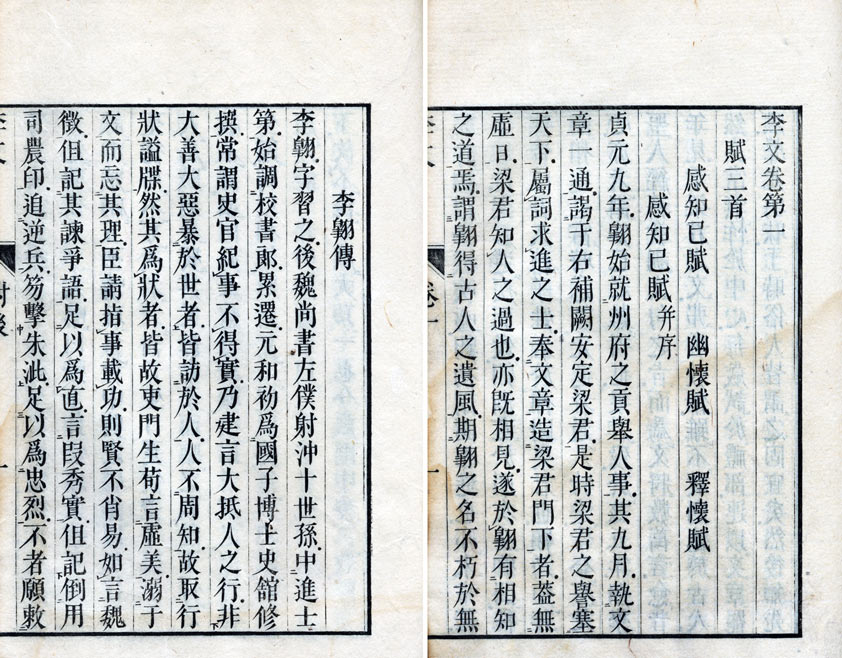 李文卷第一
賦三首
感知己賦　幽懷賦　釋懷賦
感知己賦并序
貞元九年翺始就州府之貢舉人事其九月執文
章一通謁于右補闕安定梁君是時梁君之譽塞
天下屬詞求進之士奉文章造梁君門下者蓋無
虛日梁君知人之過也亦既相見遂於翺有相知
之道焉謂翺得古人之遺風期翺之名不朽於無
李文　卷一　一
李翺傳
李翺字習之後魏尚書左僕射沖十世孫中進士
第始調校書郎累遷元和初爲國子博士史館修
撰常謂史官紀事不得實乃建言大抵人之行非
大善大惡暴於世者皆訪於人人不周知故取行
狀謚牒然其爲狀者皆故吏門生苟言虛美溺于
文而忘其理臣請指事載功則賢不肖易如言魏
徵但記其諫爭語足以爲直言段秀實但記倒用
司農印追逆兵笏擊朱泚足以爲忠烈不者願敕
李文　附後　一